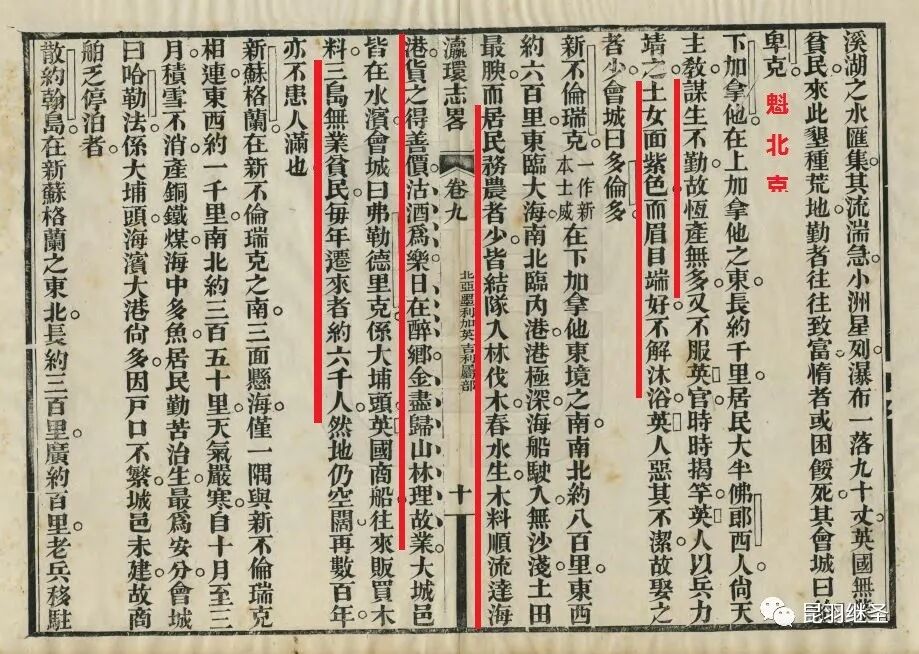 溪湖之水匯集其流湍急小洲星列瀑布一落九十丈英國無
貧民來此墾種荒地勤者往往致富惰者或困餒死其會城曰
卑克
魁北克
下加拿他在上加拿他之東長約千里居民大半佛郎西人尚天
主教謀生不勤故恆產無多又不服英官時時揭竿英人以兵力
靖之土女面紫色而眉目端好不解沐浴英人惡其不潔故娶之
者少會城曰多倫多
新不倫瑞克一作新本士威在下加拿他東境之南南北約八百里東西
約六百里東臨大海南北臨內港港極深海船駛入無沙淺土田
最腴而居民務農者少皆結隊入林伐木春水生木料順流達海
瀛環志畧 卷九 北亞墨利加英吉利屬部 十
港貨之得善價沽酒爲樂日在醉鄉金盡歸山林理故業大城邑
皆在水濱會城曰弗勒德里克係大埔頭英國商船往來販買木
料三島無業貧民每年遷來者約六千人然地仍空闊再數百年
亦不患人滿也
新蘇格蘭在新不倫瑞克之南三面懸海僅一隅與新不倫瑞克
相連東西約一千里南北約三百五十里天氣嚴寒自十月至三
月積雪不消產銅鐵煤海中多魚居民勤苦治生最爲安分會城
曰哈勒法係大埔頭海濱大港尚多因戶口不繁城邑未建故商
舶乏停泊者
散約翰島在新蘇格蘭之東北長約三百里廣約百里老兵移駐
昆羽继圣